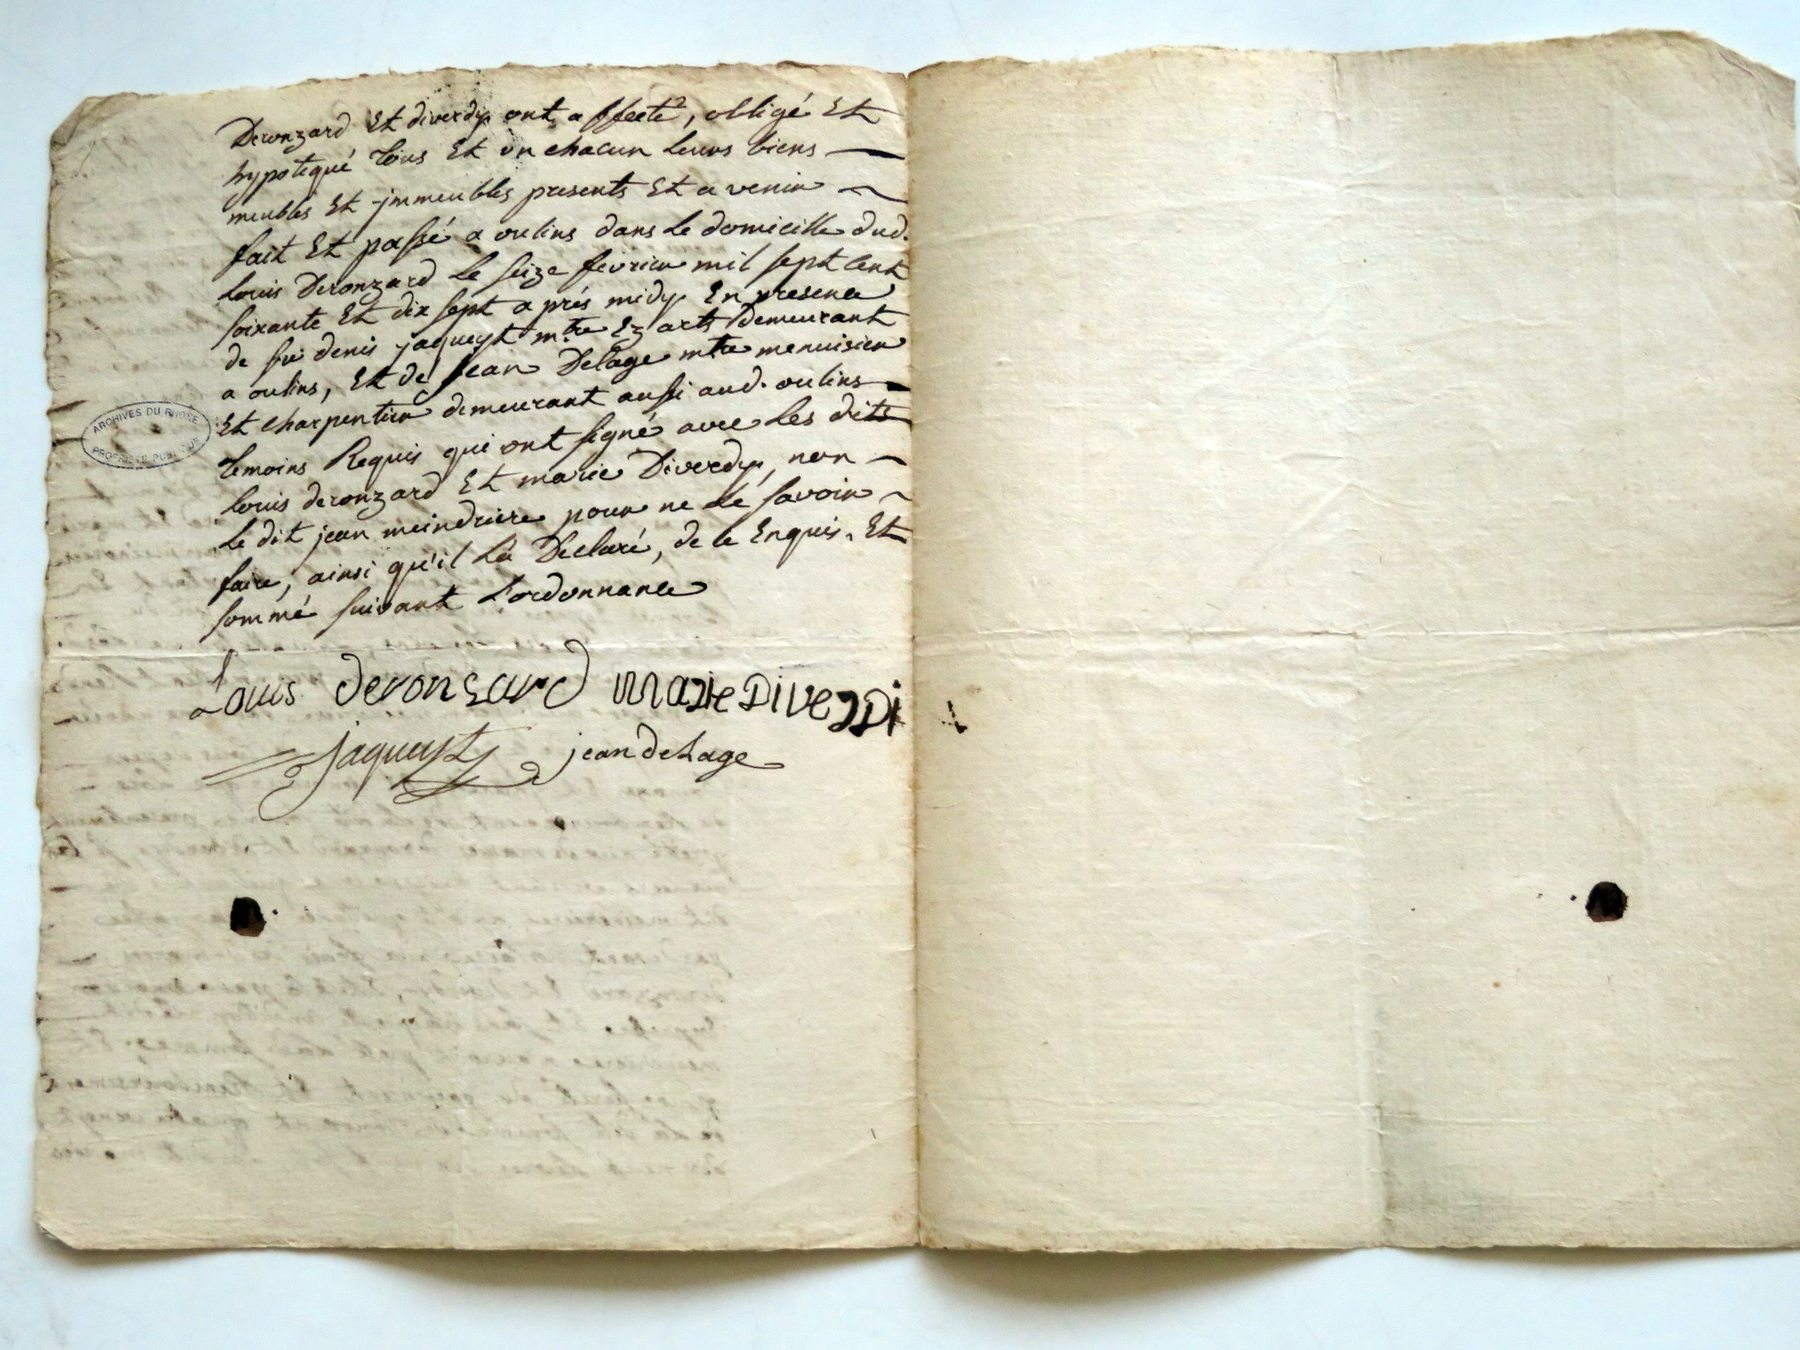 Deronzard Et diverdy ont affecté, obligé Et
hypotequé tous Et un chacun leurs biens
meubles Et jmmeubles presents Et a venir
fait Et passé a oulins dans le domicille dud.
louis Deronzard le seize fevrier mil sept cent
soixante Et dix sept a prés midy En presence
de denis jaqueyt mtre Ez arts Demeurant
a oulins, Et de jean Delage mtre menuisier
Et charpentier demeurant aussi aud. oulins
temoins Requis qui ont signé avec les dits
louis deronzard Et marie Diverdy, non
le dit jean meindriere pour ne le savoir
faire, ainsi qu'il la Declaré, de ce Enquis, Et
sommé suivant l'ordonnance
Louis deronzard marie Diverdi
jaqueyt jean delage
ARCHIVES DU RHÔNE
PROPRIÉTÉ PUBLIQUE